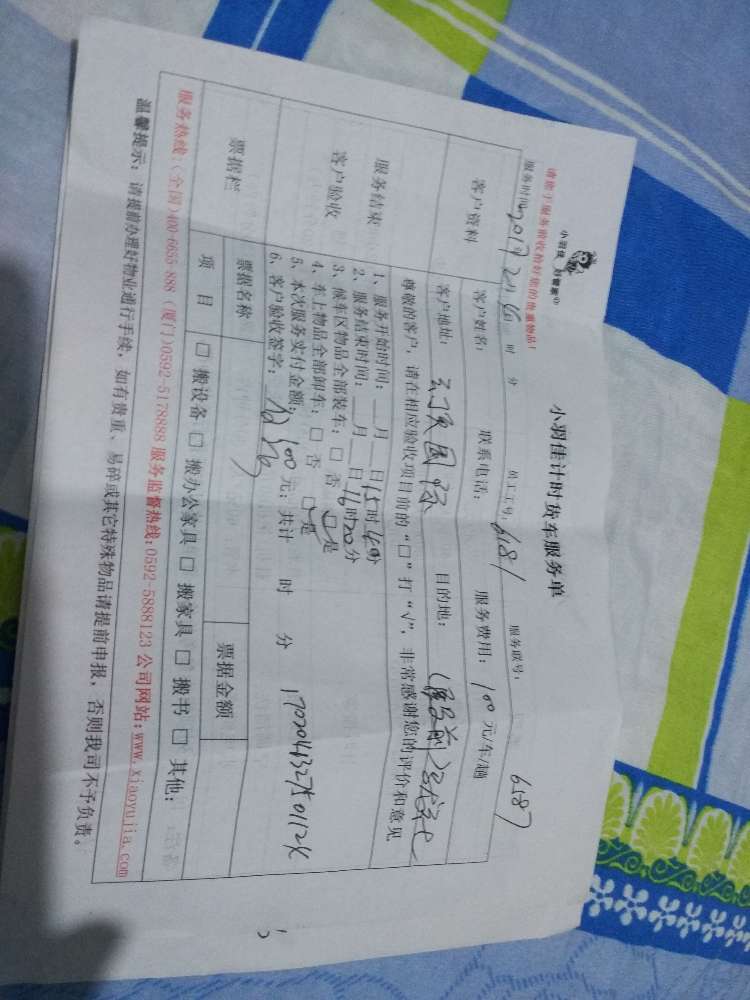 小羽佳 好管家
小羽佳计时货车服务单
请您于服务前收捡好您的贵重物品!
服务时间: 2017年2月 日 时 分 员工工号: 6181 服务联号: 6587
客户资料 客户姓名: 联系电话: 服务费用: 100元/车/趟
客户地址: 国际 目的地:
尊敬的客户,请在相应验收项目前的“□”打“√”,非常感谢您的评价和意见
服务结束
客户验收
1、服务开始时间: 月 日15时40分
2、服务结束时间: 月 日16时20分
3、候车区物品全部装车:□ 否 □是
4、车上物品全部卸车:□ 否 □是
5、本次服务实付金额: 100元;共计 时 分 170204132750112K
6、客户验收签字:
票据栏 票据名称 票据金额
项 目 □ 搬设备 □ 搬办公家具 □ 搬家具 □ 搬书 □ 其他:
服务热线:(全国)400-6655-888 (厦门)0592-5178888 服务监督热线:0592-5888123 公司网站:www.xiaoyujia.com
温馨提示:请提前办理好物业通行手续,如有贵重、易碎或其它特殊物品请提前申报,否则我司不予负责。